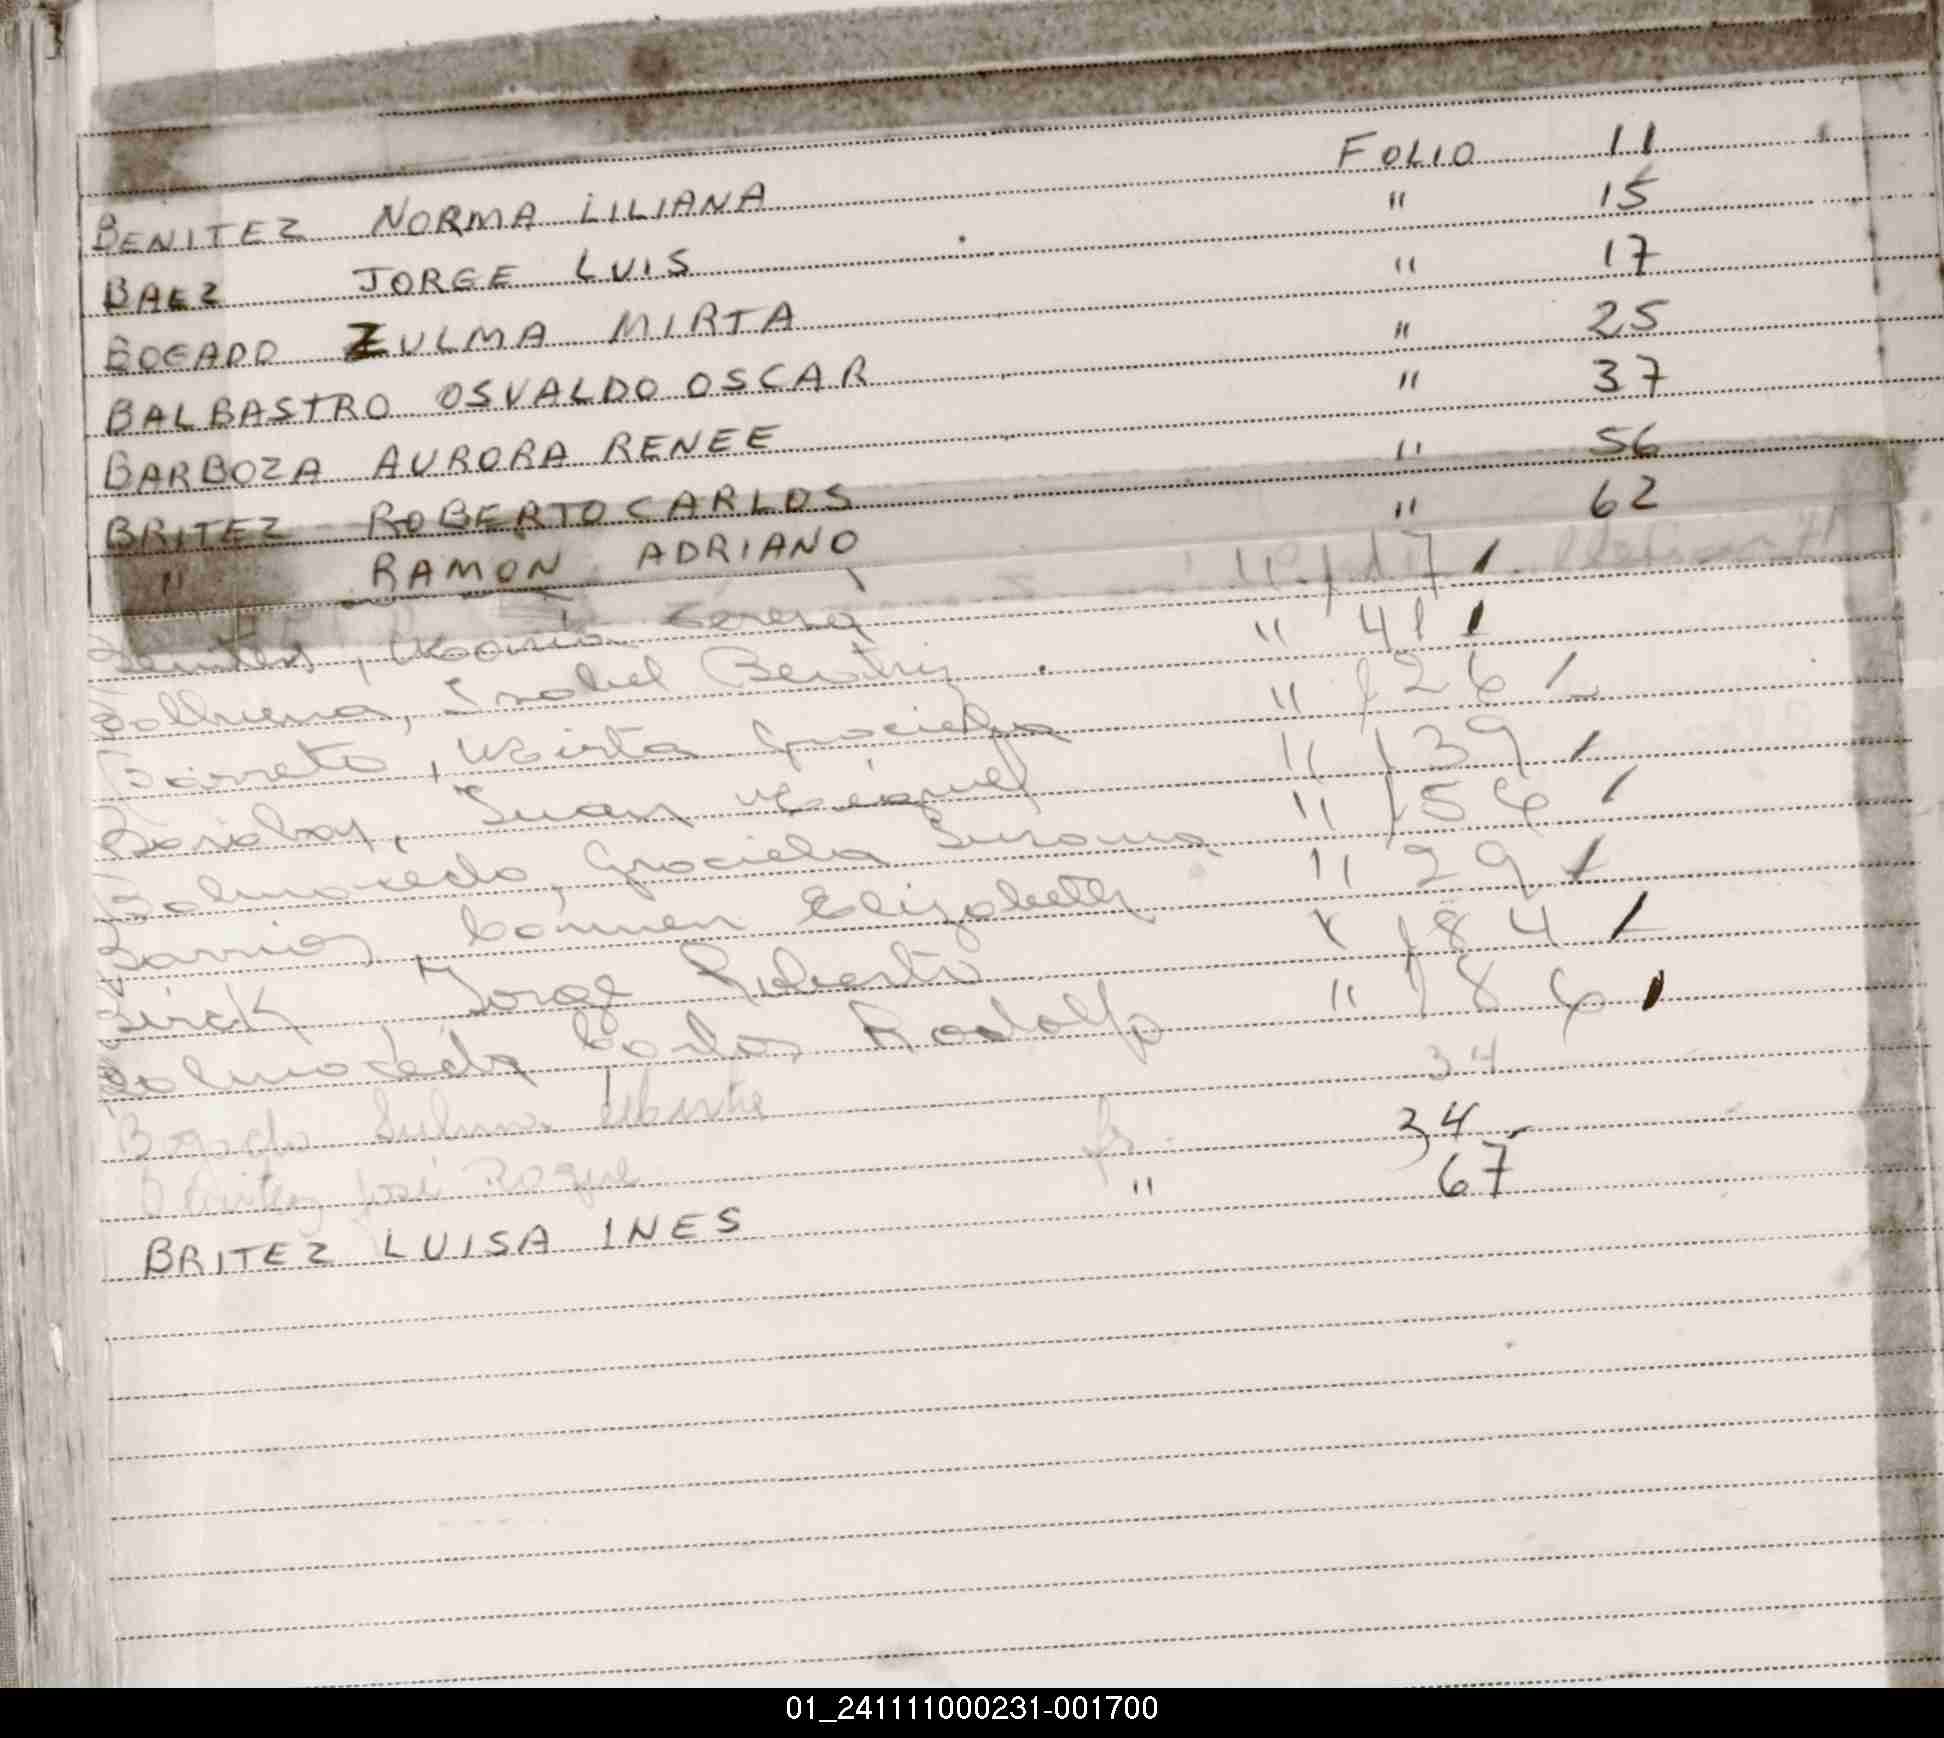 BENITEZ NORMA LILIANA FOLIO 11
BAEZ JORGE LUIS " 15
BOGADO ZULMA MIRTA " 17
BALBASTRO OSVALDO OSCAR " 25
BARBOZA AURORA RENEE " 37
BRITEZ ROBERTO CARLOS " 56
" RAMON ADRIANO " 62
Benitez, María Teresa " 117
Isabel Beatriz " 41
Barreto, Mirta Graciela " 126
Juan Miguel " 139
Balmaceda, Graciela Susana " 156
Barrios Carmen Elizabeth " 29
Birck, Jorge Roberto " 184
Balmaceda, Carlos Rodolfo " 186
Bogado Sulma Mirta 34
Benitez José Roque fs 34
BRITEZ LUISA INES " 67
01_241111000231-001700